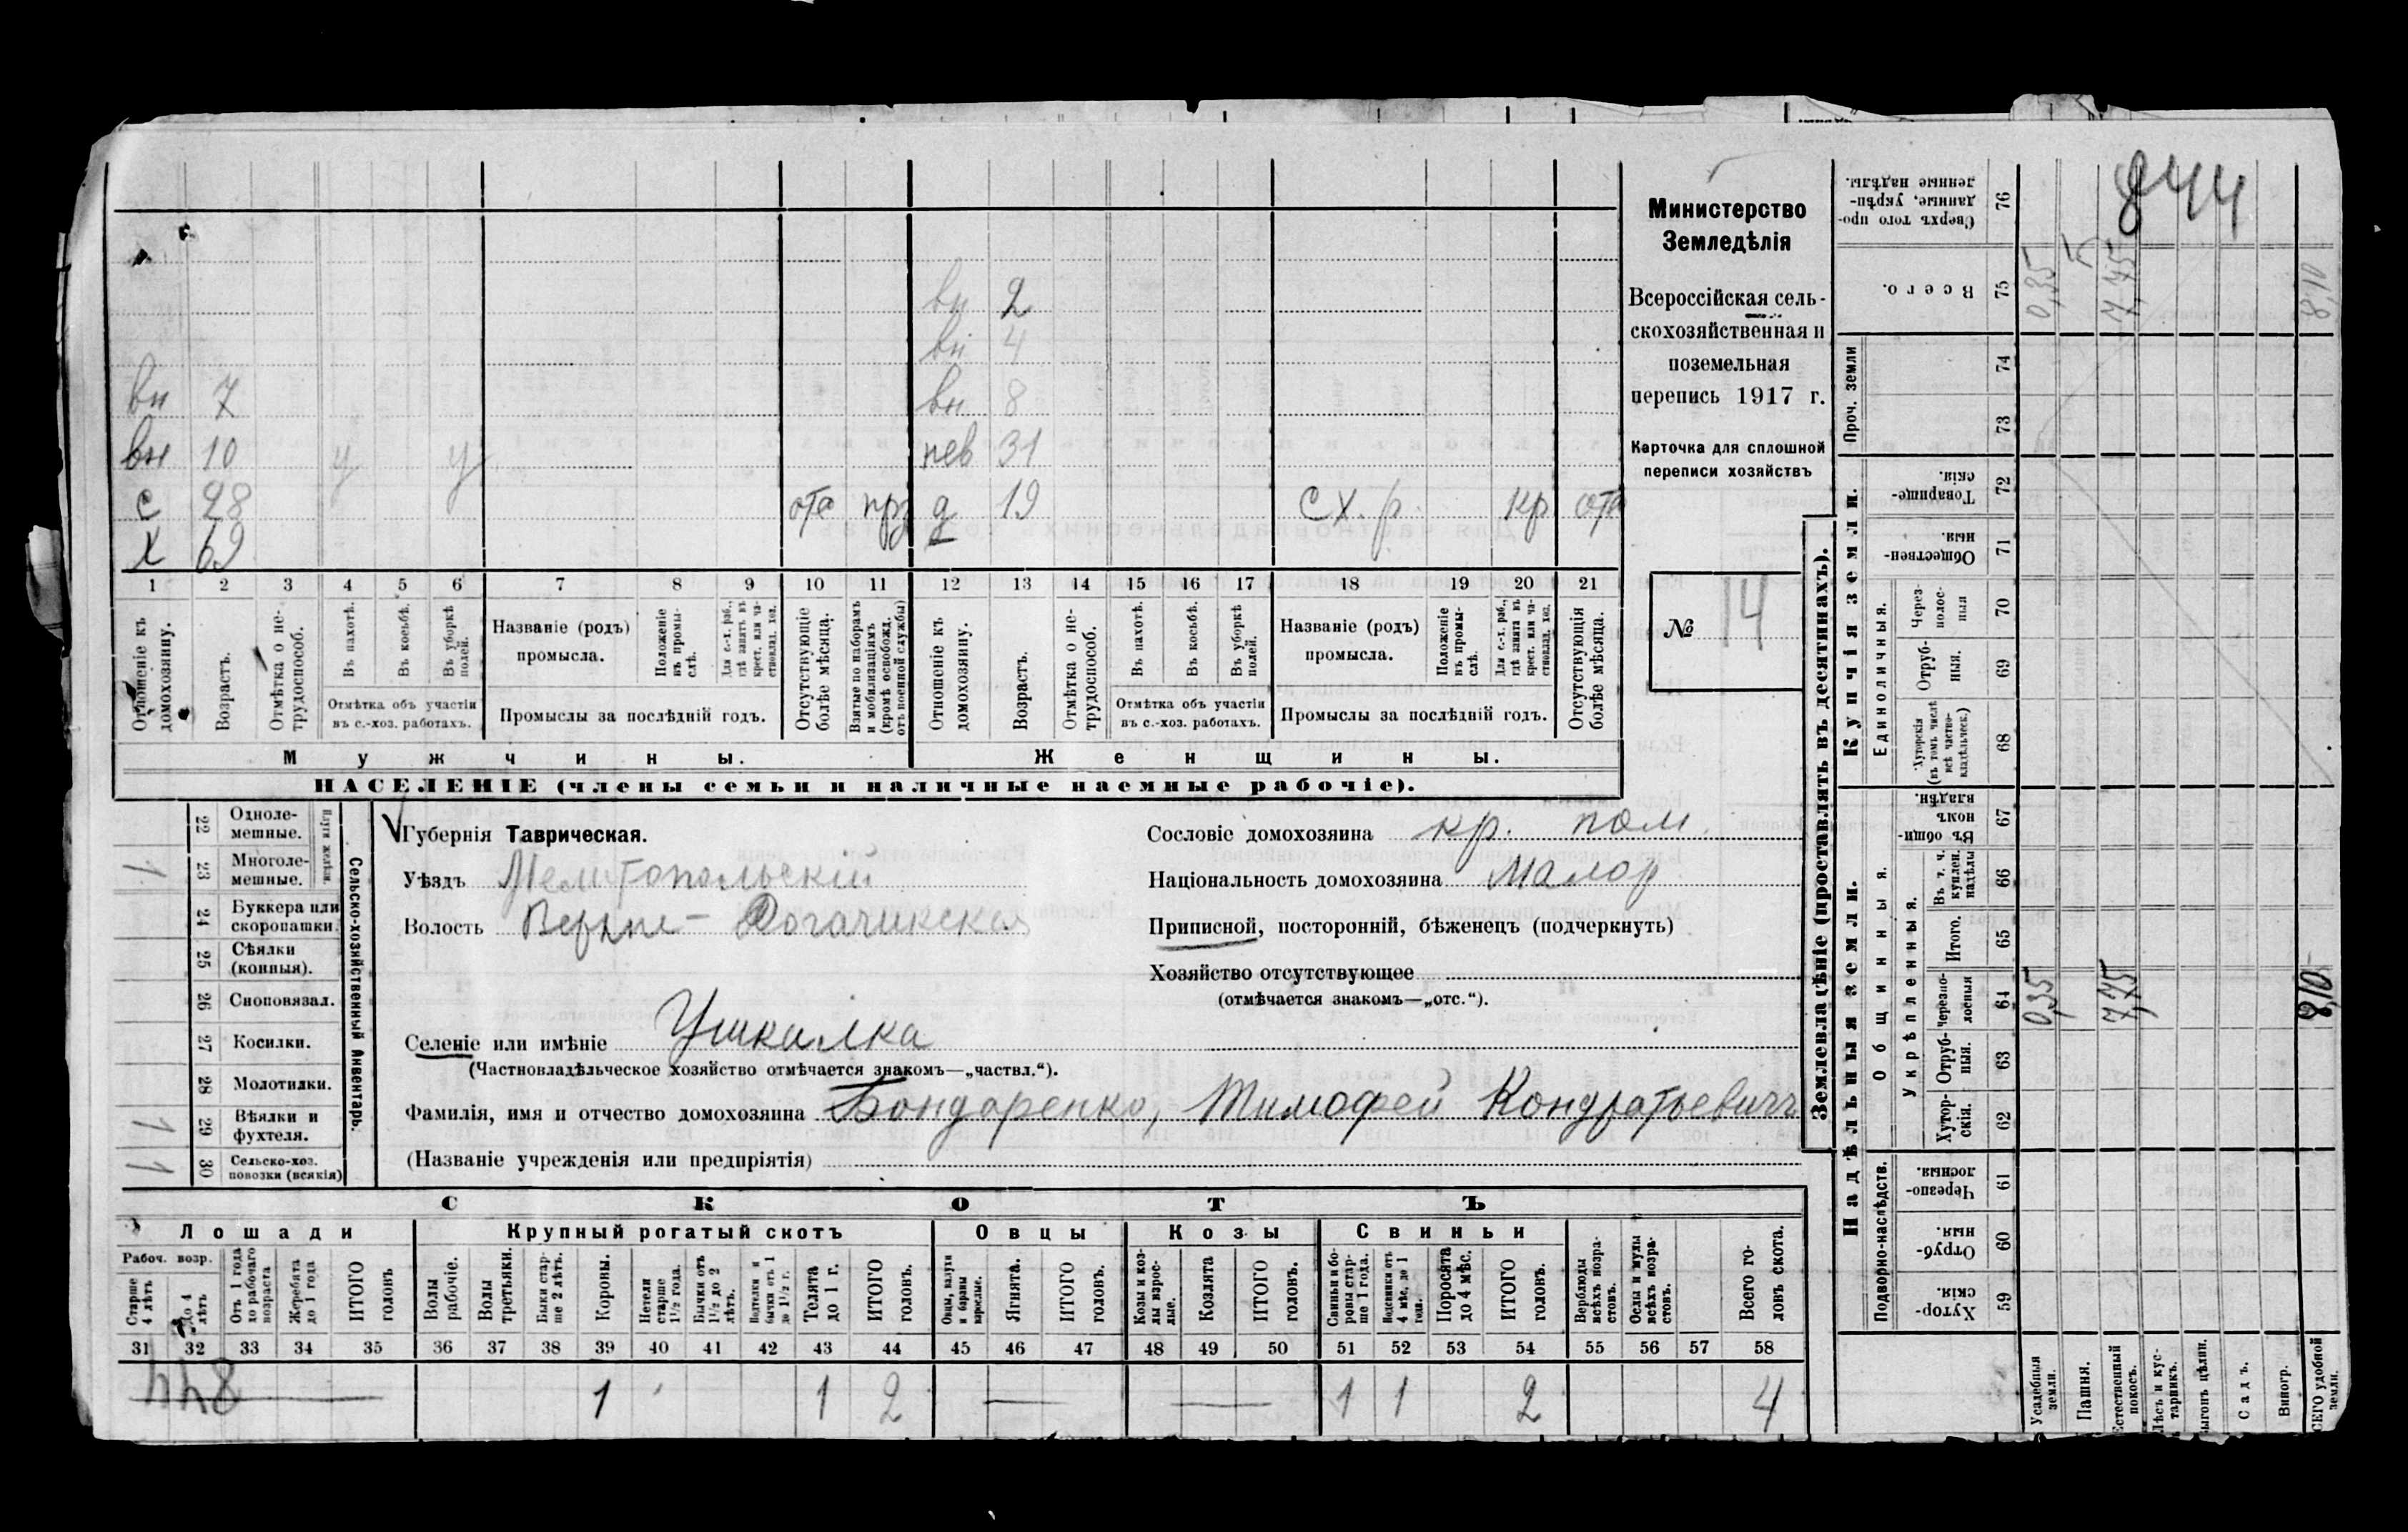 844
Министерство
Земледѣлія
Всероссійская сель-
скохозяйственная и
поземельная
перепись 1917 г.
Карточка для сплошной
переписи хозяйствъ
№ 14
вн 2
вн 4
вн 7 вн 8
вн 10 у у нев 31
с 28 отс прз д 19 с х. р. кр отс
х 69
1 2 3 4 5 6 7 8 9 10 11 12 13 14 15 16 17 18 19 20 21
Отношеніе къ домохозяину.
Возрастъ.
Отмѣтка о не-трудоспособ.
Въ пахотѣ.
Въ косьбѣ.
Въ уборкѣ полей.
Отмѣтка объ участіи
въ с.-хоз. работахъ.
Названіе (родъ)
промысла.
Положеніе въ промы-слѣ.
Для с.-х. раб., гдѣ занятъ въ крест. или ча-стновлад. хоз.
Промыслы за послѣдній годъ.
Отсутствующіе болѣе мѣсяца.
Взятые по наборамъ и мобилизаціямъ (кромѣ освобожд. отъ военной службы)
Отношеніе къ домохозяину.
Возрастъ.
Отмѣтка о не-трудоспособ.
Въ пахотѣ.
Въ косьбѣ.
Въ уборкѣ полей.
Отмѣтка объ участіи
въ с.-хоз. работахъ.
Названіе (родъ)
промысла.
Положеніе въ промы-слѣ.
Для с.-х. раб., гдѣ занята въ крест. или ча-стновлад. хоз.
Промыслы за послѣдній годъ.
Отсутствующія болѣе мѣсяца.
Мужчины. Женщины.
НАСЕЛЕНІЕ (члены семьи и наличные наемные рабочіе).
Сельско-хозяйственный Инвентарь.
22 Одноле-мешные.
1 23 Многоле-мешные.
24 Буккера или скоропашки.
25 Сѣялки (конныя).
26 Сноповязал.
27 Косилки.
28 Молотилки.
1 29 Вѣялки и фухтеля.
1 30 Сельско-хоз. повозки (всякія)
Губернія Таврическая.
Уѣздъ Мелитопольскій
Волость Верхне-Рогачикская
Сословіе домохозяина кр. пом.
Національность домохозяина Малор
Приписной, посторонній, бѣженецъ (подчеркнуть)
Хозяйство отсутствующее
(отмѣчается знакомъ—„отс.“).
Селеніе или имѣніе Ушкалка
(Частновладѣльческое хозяйство отмѣчается знакомъ—„частвл.“).
Фамилія, имя и отчество домохозяина Бондаренко, Тимофей Кондратьевичъ
(Названіе учрежденія или предпріятія)
СКОТЪ
Лошади Крупный рогатый скотъ Овцы Козы Свиньи
Рабоч. возр.
Старше 4 лѣтъ
До 4 лѣтъ
Отъ 1 года до рабочаго возраста
Жеребята до 1 года
ИТОГО головъ
Волы рабочіе.
Волы третьяки.
Быки стар-ше 2 лѣтъ.
Коровы.
Нетели старше 1½ года.
Бычки отъ 1½ до 2 лѣтъ.
Телята до 1 г.
ИТОГО головъ.
Ягнята.
ИТОГО головъ.
Козы и коз-лы взрос-лые.
Козлята
ИТОГО головъ.
Свиньи и бо-ровы стар-ше 1 года.
Подсвинки отъ 4 мѣс. до 1 года.
Поросята до 4 мѣс.
ИТОГО головъ.
Верблюды всѣхъ возра-стовъ.
Ослы и мулы всѣхъ возра-стовъ.
Всего го-ловъ скота.
31 32 33 34 35 36 37 38 39 40 41 42 43 44 45 46 47 48 49 50 51 52 53 54 55 56 57 58
844 1 1 2 — — 1 1 2 4
Землевладѣніе (проставлять въ десятинахъ).
Купчія земли.
Надѣльныя земли.
Сверхъ того про-данные, укрѣп-ленные надѣлы. 76
Всего. 75 0,35 7,75 8,10
Проч. земли 74
73
Товарище-скія. 72
Обществен-ныя. 71
Единоличныя.
Через-полос-ныя 70
Отруб-ныя. 69
Хуторскія (въ томъ числѣ всѣ частно-владѣльческ.) 68
Общинныя.
Въ общи-номъ владѣн. 67
Укрѣпленныя.
Въ т. ч. куплен. надѣлы 66
Итого. 65
Черезпо-лосныя 64 0,35 7,75 8,10
Отруб-ныя. 63
Хутор-скія. 62
Подворно-наслѣдств.
Черезпо-лосныя. 61
Отруб-ныя. 60
Хутор-скія. 59
Усадебная земля.
Пашня.
Естественный покосъ.
Лѣсъ и кус-тарникъ.
Садъ.
Виногр.